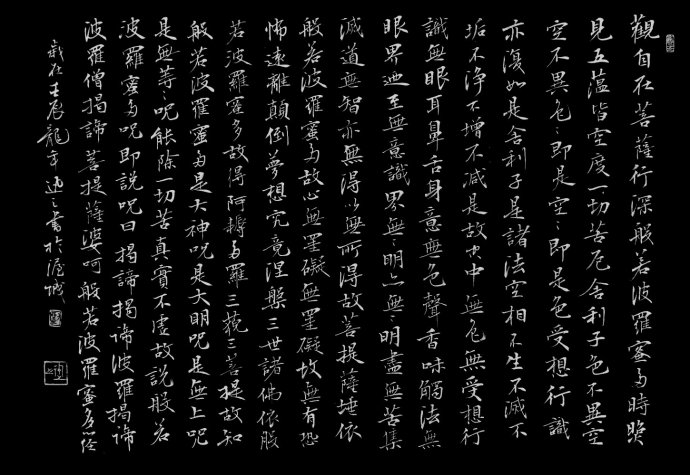 觀自在菩薩行深般若波羅蜜多時照
見五蘊皆空度一切苦厄舍利子色不異空
空不異色〻即是空〻即是色受想行識
亦復如是舍利子是諸法空相不生不滅不
垢不淨不增不減是故空中無色無受想行
識無眼耳鼻舌身意無色聲香味觸法無
眼界迺至無意識界無〻明亦無〻明盡無苦集
滅道無智亦無得以無所得故菩提薩埵依
般若波羅蜜多故心無罣礙無罣礙故無有恐
怖遠離顛倒夢想究竟涅槃三世諸佛依般
若波羅蜜多故得阿耨多羅三藐三菩提故知
般若波羅蜜多是大神呪是大明呪是無上呪
是無等呪能除一切苦真實不虛故說般若
波羅蜜多呪即說呪曰揭諦揭諦波羅揭諦
波羅僧揭諦菩提薩婆呵般若波羅蜜多心經
歲在壬辰龍年書於滬城